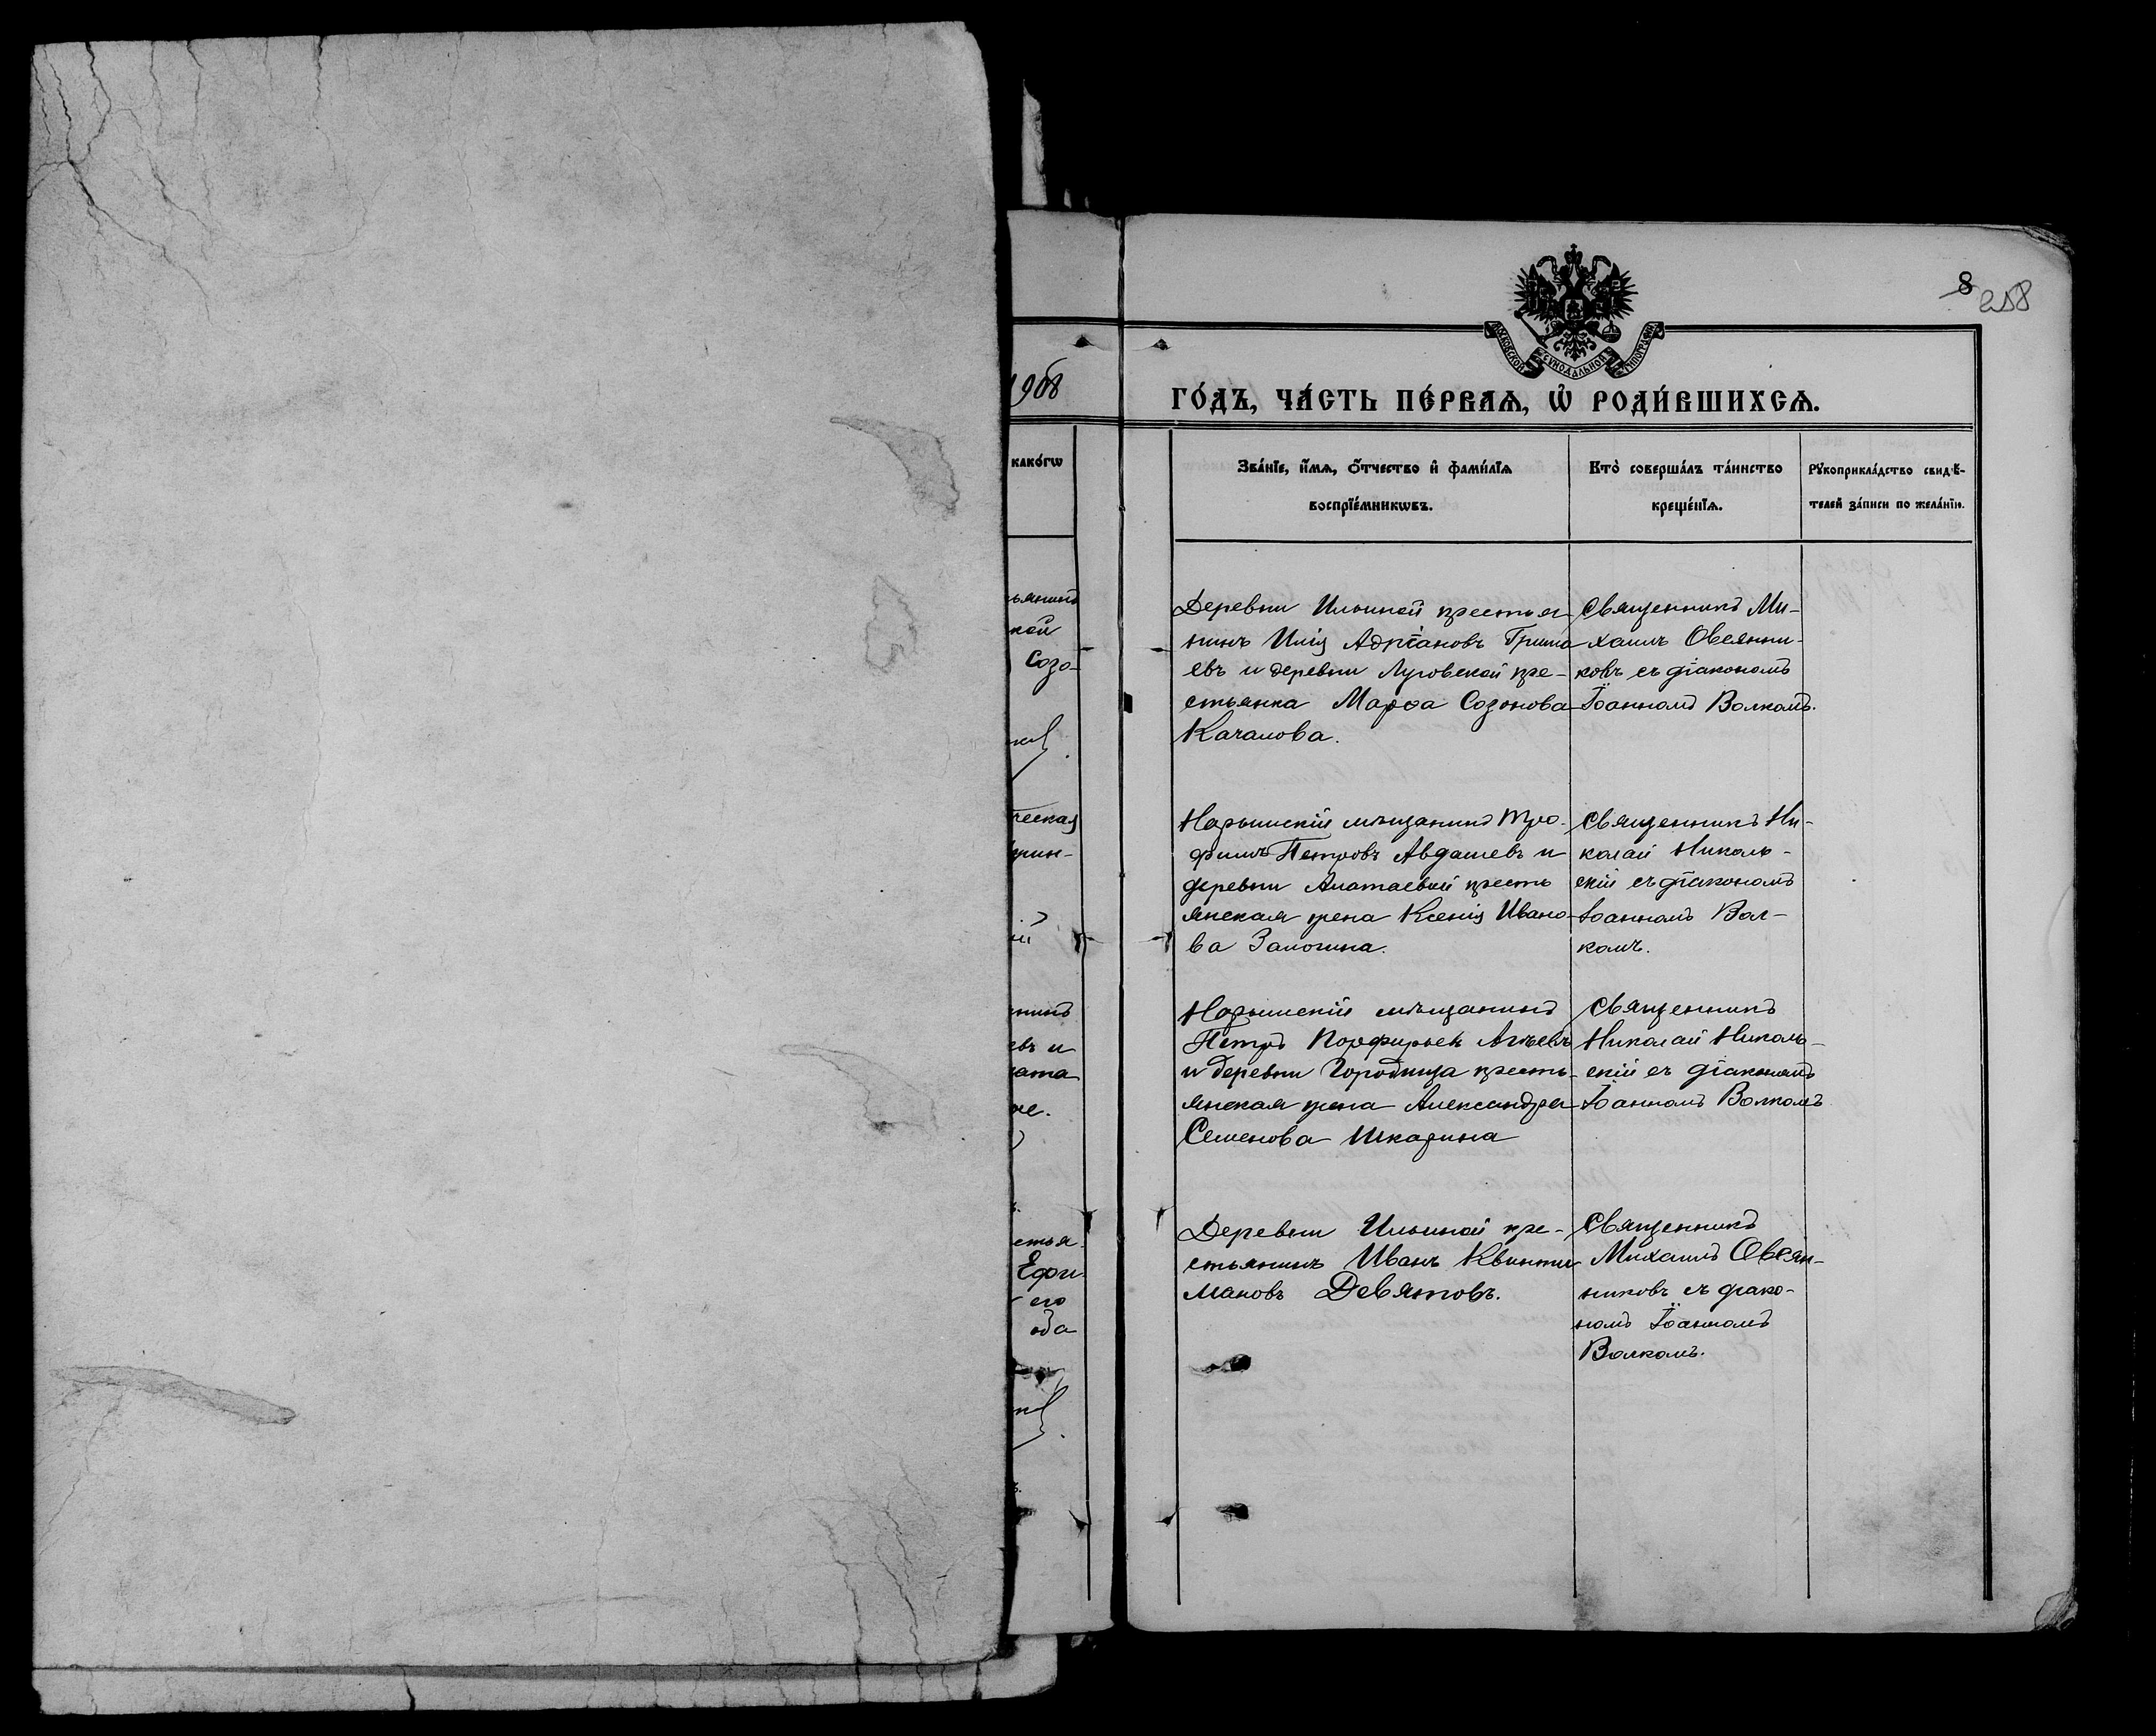 8
258
МОСКОВСКОЙ СѴНОДАЛЬНОЙ ТИПОГРАФІИ
1908
ГО́ДЪ, ЧА́СТЬ ПЕ́РВАѦ, Ѡ҆ РОДИ́ВШИХСѦ.
како́гѡ
Зва́нїе, и҆́мѧ, ѻ҆́тчество и҆ фамилі́ѧ
воспрїе́мникѡвъ.
Кто̀ соверша́лъ та́инство
креще́нїѧ.
Рꙋкоприкла́дство свидѣ́-
телей за́писи по жела́нїю.
ьянинъ
кой
Созо-
Деревни Ильиной крестья-
нинъ Илія Адріановъ Гришa
евъ и деревни Луговской кре-
стьянка Марѳа Созонова
Качалова.
Священникъ Ми-
хаилъ Овсянни-
ковъ съ діакономъ
Іоанномъ Волкомъ.
ческая
Нарымскій мѣщанинъ Тро-
фимъ Петровъ Авдашевъ и
деревни Алатаевой кресть
янская жена Ксенія Ивано-
ва Залогина.
Священникъ Ни-
колай Николь-
скій съ діакономъ
Іоанномъ Вол-
комъ.
нинъ
евъ и
ата
не.
Нарымскій мѣщанинъ
Петръ Порфирьевъ
и деревни Городища кресть-
янская жена Александра
Семенова Шкарина
Священникъ
Николай Николь-
скій съ діакономъ
Іоанномъ Волкомъ
стья
Ефи
его
ода
Деревни Ильиной кре-
стьянинъ Иванъ Квинти
лановъ Девятовъ.
Священникъ
Михаилъ Овсян-
никовъ съ діако-
номъ Іоанномъ
Волкомъ.